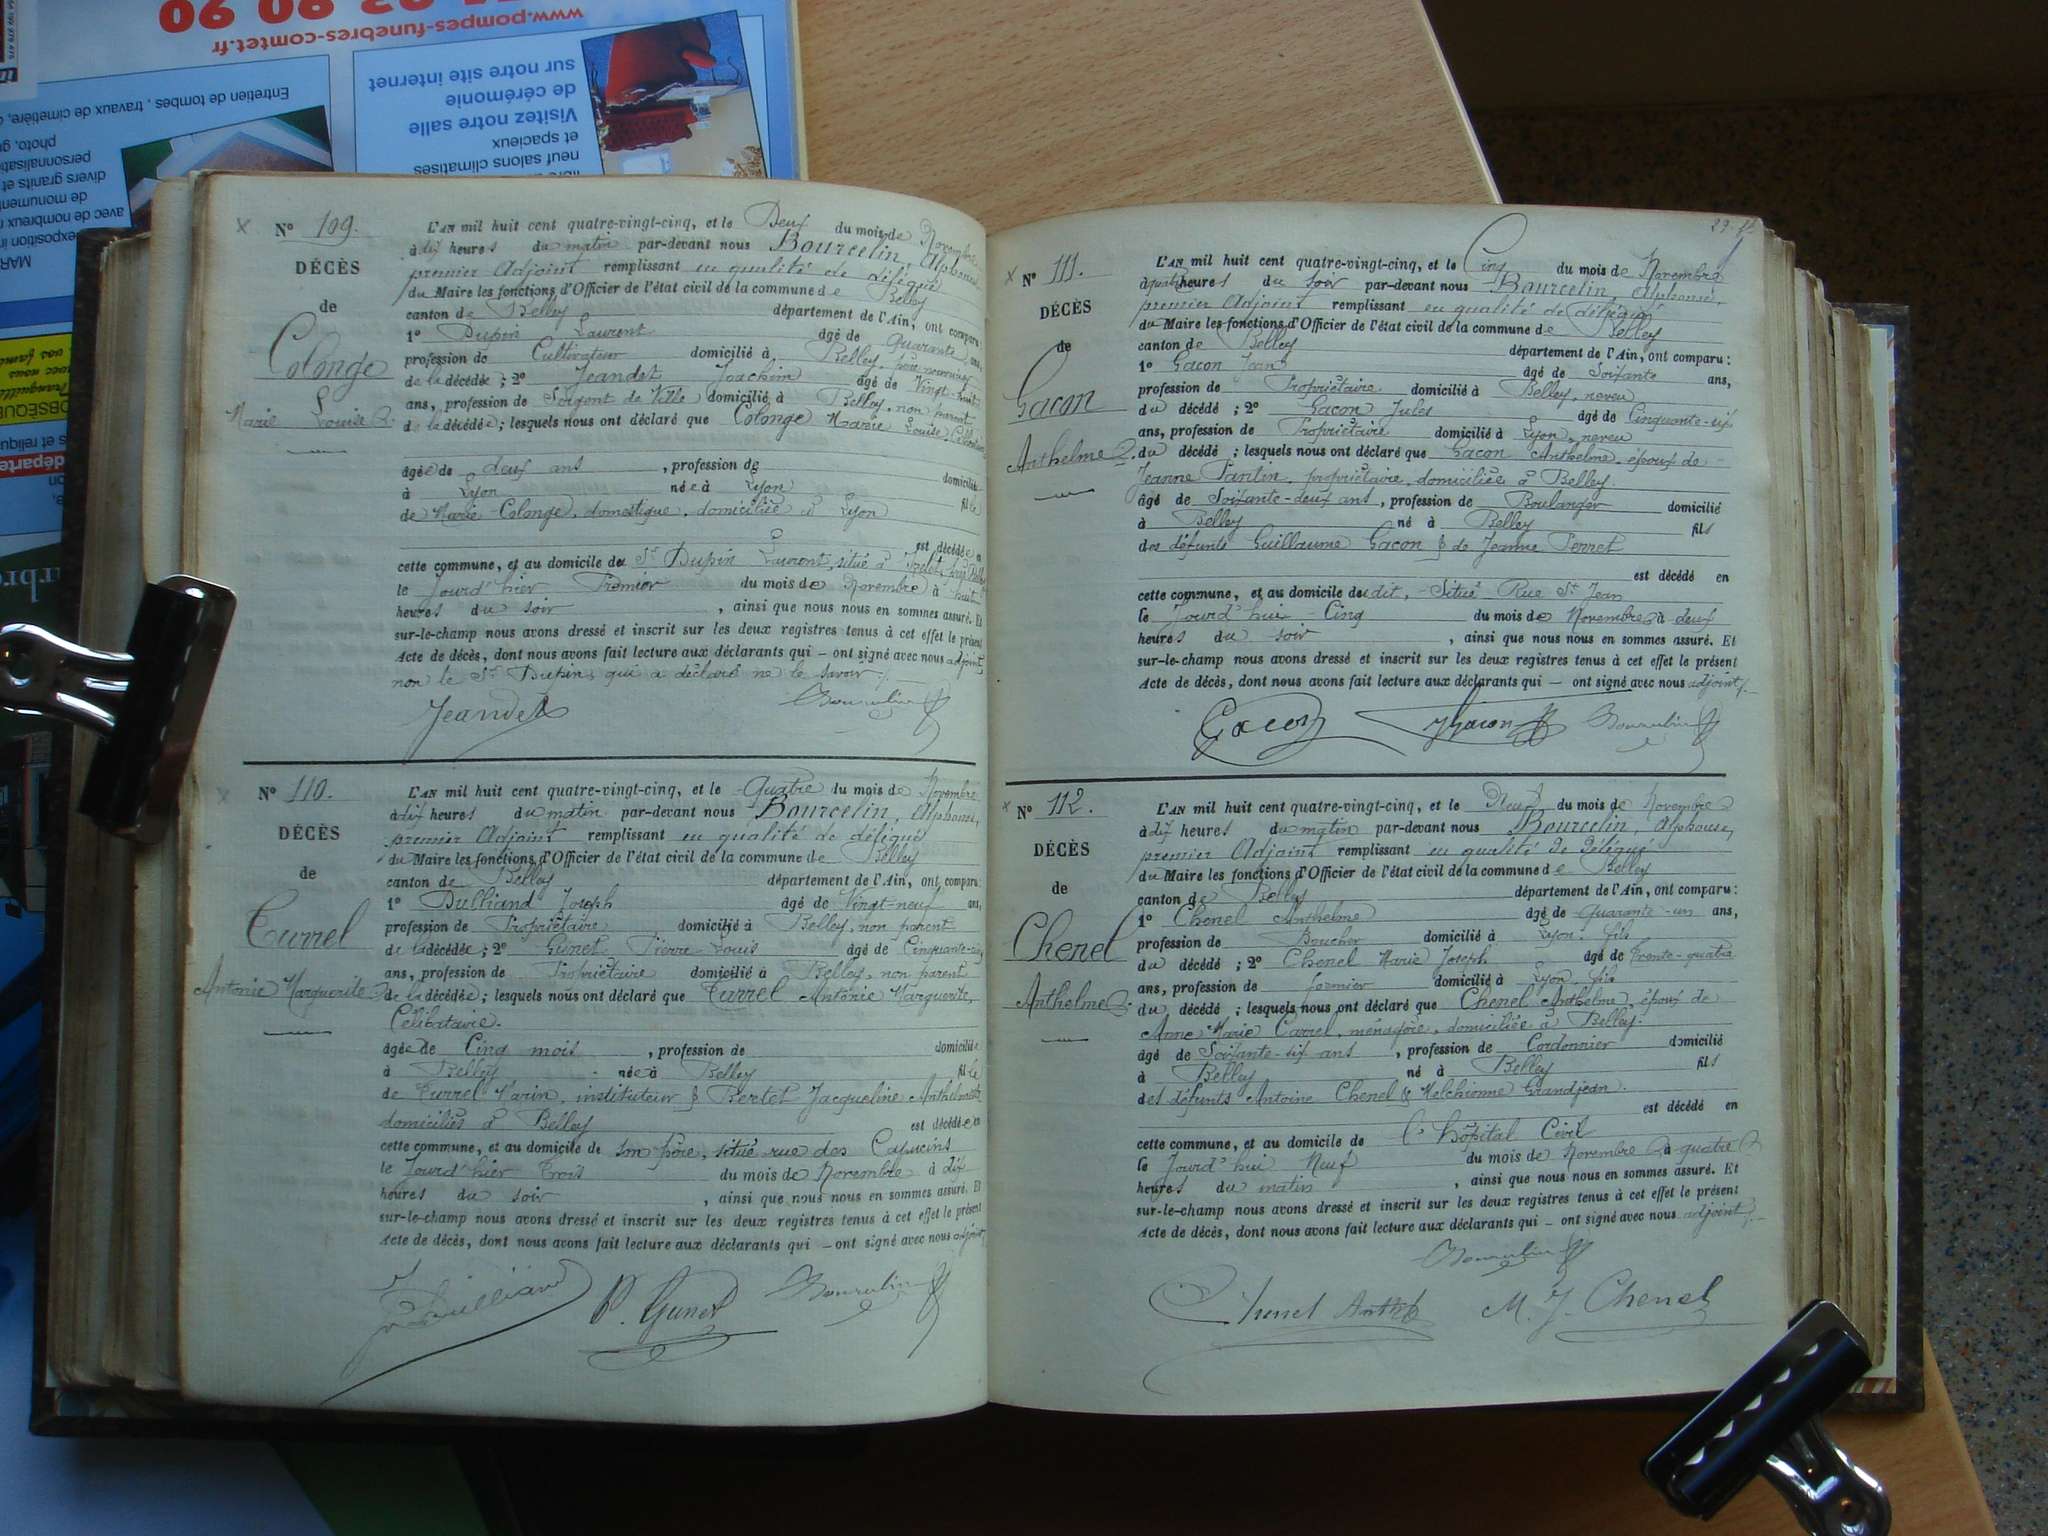 www.pompes-funebres-comtet.fr
Visitez notre salle
de cérémonie
sur notre site internet
neuf salons climatisés
et spacieux
Entretien de tombes, travaux de cimetière,
N° 109.
DÉCÈS
de
Colonge
Marie Louise
L'AN mil huit cent quatre-vingt-cinq, et le Deux du mois de Novembre
à dix heures du matin par-devant nous Bourcelin, Alphonse
premier Adjoint remplissant en qualité de délégué
du Maire les fonctions d'Officier de l'état civil de la commune de Belley
canton de Belley département de l'Ain, ont comparu:
1° Dupin Laurent âgé de Quarante ans,
profession de Cultivateur domicilié à Belley, père nourricier
de la décédée; 2° Jeandet Joachim âgé de Vingt-huit
ans, profession de Sergent de Ville domicilié à Belley, non parent
de la décédée; lesquels nous ont déclaré que Colonge Marie Louise, Célibataire
âgée de deux ans, profession de domiciliée
à Lyon née à Lyon fille
de Marie Colonge, domestique, domiciliée à Lyon
est décédée en
cette commune, et au domicile du Sr Dupin Laurent, situé à
le Jourd'hier Premier du mois de Novembre à huit
heures du soir, ainsi que nous nous en sommes assuré. Et
sur-le-champ nous avons dressé et inscrit sur les deux registres tenus à cet effet le présent
Acte de décès, dont nous avons fait lecture aux déclarants qui — ont signé avec nous adjoint,
non le Sr Dupin, qui a déclaré ne le savoir ./.
Jeandet Bourcelin
N° 110.
DÉCÈS
de
Turrel
Antonie Marguerite
L'AN mil huit cent quatre-vingt-cinq, et le Quatre du mois de Novembre
à dix heures du matin par-devant nous Bourcelin, Alphonse,
premier Adjoint remplissant en qualité de délégué
du Maire les fonctions d'Officier de l'état civil de la commune de Belley
canton de Belley département de l'Ain, ont comparu:
1° Dulliand Joseph âgé de Vingt-neuf ans,
profession de Propriétaire domicilié à Belley, non parent
de la décédée; 2° Gunet Pierre Louis âgé de Cinquante-six
ans, profession de Propriétaire domicilié à Belley, non parent
de la décédée; lesquels nous ont déclaré que Turrel Antonie Marguerite,
Célibataire.
âgée de Cinq mois, profession de domiciliée
à Belley née à Belley fille
de Turrel Marin, instituteur & Bertet Jacqueline Anthelmette
domiciliés à Belley est décédée en
cette commune, et au domicile de son père, situé rue des Capucins
le Jourd'hier Trois du mois de Novembre à dix
heures du soir, ainsi que nous nous en sommes assuré. Et
sur-le-champ nous avons dressé et inscrit sur les deux registres tenus à cet effet le présent
Acte de décès, dont nous avons fait lecture aux déclarants qui — ont signé avec nous adjoint
J Dulliand P. Gunet Bourcelin
N° 111.
DÉCÈS
de
Gacon
Anthelme
L'AN mil huit cent quatre-vingt-cinq, et le Cinq du mois de Novembre
à quatre heures du soir par-devant nous Bourcelin, Alphonse,
premier Adjoint remplissant en qualité de délégué
du Maire les fonctions d'Officier de l'état civil de la commune de Belley
canton de Belley département de l'Ain, ont comparu:
1° Gacon Jean âgé de Soixante ans,
profession de Propriétaire domicilié à Belley, neveu
du décédé; 2° Gacon Jules âgé de Cinquante-six
ans, profession de Propriétaire domicilié à Lyon, neveu
du décédé; lesquels nous ont déclaré que Gacon Anthelme, époux de
Jeanne Tantin, propriétaire, domiciliée à Belley.
âgé de Soixante-deux ans, profession de Boulanger domicilié
à Belley né à Belley fils
des défunts Guillaume Gacon & de Jeanne Perret
est décédé en
cette commune, et au domicile dudit, Situé Rue St Jean
le Jourd'hui Cinq du mois de Novembre à deux
heures du soir, ainsi que nous nous en sommes assuré. Et
sur-le-champ nous avons dressé et inscrit sur les deux registres tenus à cet effet le présent
Acte de décès, dont nous avons fait lecture aux déclarants qui — ont signé avec nous adjoint ./.
Gacon J Gacon Bourcelin
N° 112.
DÉCÈS
de
Chenel
Anthelme
L'AN mil huit cent quatre-vingt-cinq, et le Neuf du mois de Novembre
à dix heures du matin par-devant nous Bourcelin, Alphonse,
premier Adjoint remplissant en qualité de délégué
du Maire les fonctions d'Officier de l'état civil de la commune de Belley
canton de Belley département de l'Ain, ont comparu:
1° Chenel Anthelme âgé de Quarante-un ans,
profession de Boucher domicilié à Lyon, fils
du décédé; 2° Chenel Marie Joseph âgé de Trente-quatre
ans, profession de fermier domicilié à Lyon, fils
du décédé; lesquels nous ont déclaré que Chenel Anthelme, époux de
Anne Marie Carrel, ménagère, domiciliée à Belley.
âgé de Soixante-six ans, profession de Cordonnier domicilié
à Belley né à Belley fils
des défunts Antoine Chenel & Melchionne Grandjean.
est décédé en
cette commune, et au domicile de l'hôpital Civil
le Jourd'hui Neuf du mois de Novembre à quatre
heures du matin, ainsi que nous nous en sommes assuré. Et
sur-le-champ nous avons dressé et inscrit sur les deux registres tenus à cet effet le présent
Acte de décès, dont nous avons fait lecture aux déclarants qui — ont signé avec nous adjoint ./.
Bourcelin
Chenel Anth M. J. Chenel